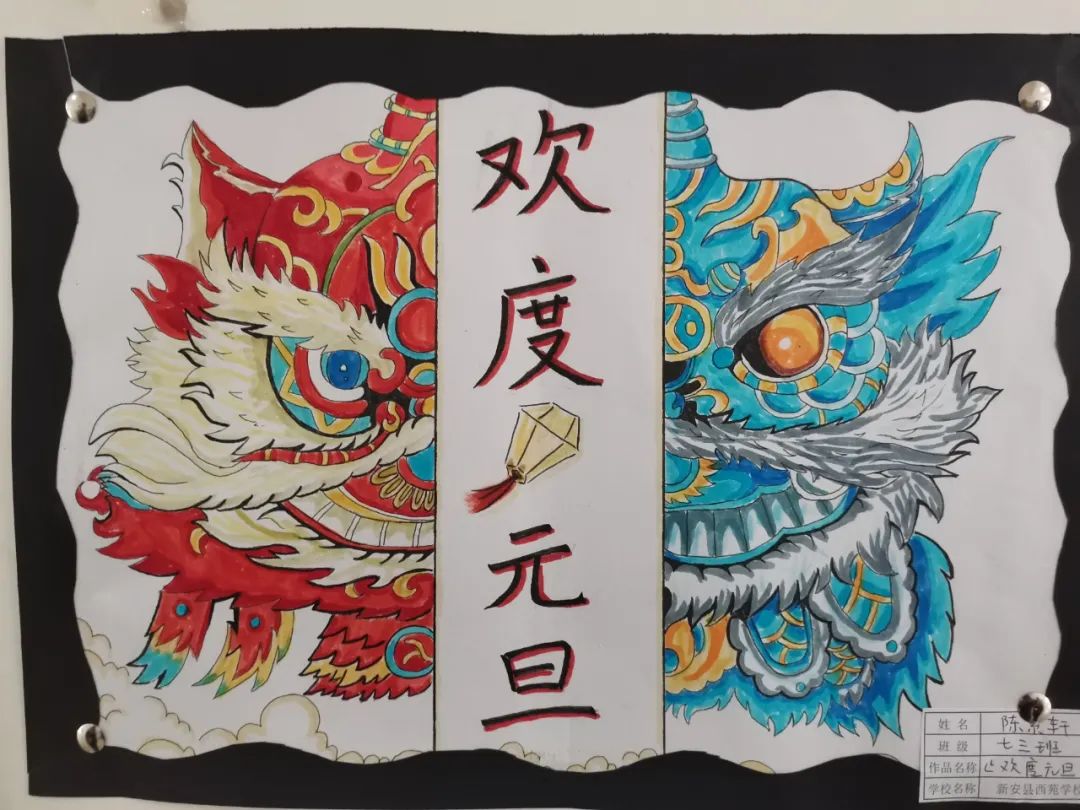 欢
度
元
旦
姓名 陈
轩
班级 七三班
作品名称 《欢度元旦
学校名称 新安县西苑学校